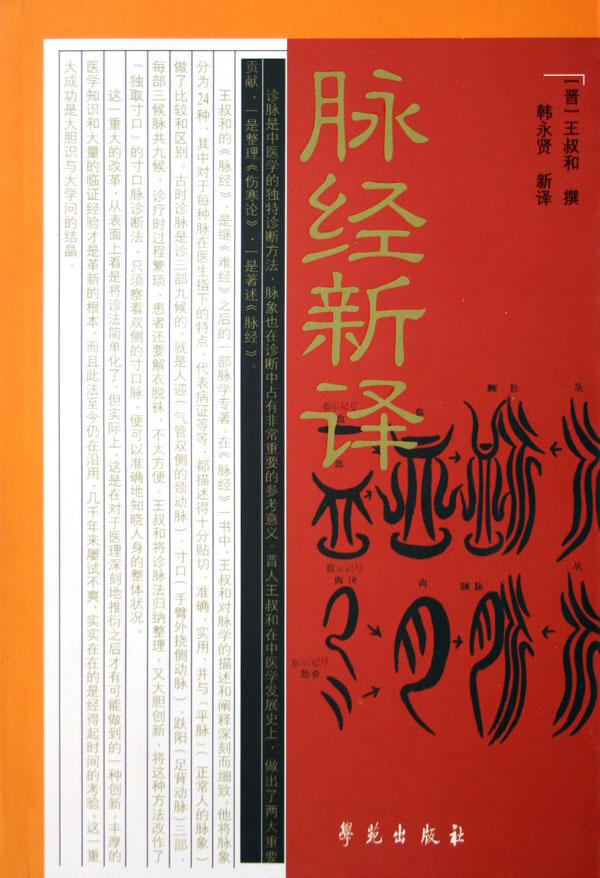 [晋]王叔和 撰
韩永贤 新译
脉经新译
诊脉是中医学的独特诊断方法，脉象也在诊断中占有非常重要的参考意义。晋人王叔和在中医学发展史上，做出了两大重要
贡献，一是整理《伤寒论》，一是著述《脉经》。
王叔和的《脉经》，是继《难经》之后的一部脉学专著，在《脉经》一书中，王叔和对脉学的描述和阐释深刻而细致，他将脉象
分为24种，其中对于每种脉在医生指下的特点，代表病证等等，都描述得十分贴切，准确，实用，并与『平脉』（正常人的脉象）
做了比较和区别。古时诊脉是诊三部九候的，就是人迎（气管双侧的颈动脉），寸口（手臂外挠侧动脉），趺阳（足背动脉）三部，
每部三候脉共九候，诊疗时过程繁琐，患者还要解衣脱袜，不太方便，王叔和将诊脉法归纳整理，又大胆创新，将这种方法改作了
『独取寸口』的寸口脉诊断法，只须察看双侧的寸口脉，便可以准确地知晓人身的整体状况。
这一重大的改革，从表面上看是将诊法简单化了，但实际上，这是在对于医理深刻地推衍之后才有可能做到的一种创新，丰厚的
医学知识和大量的临证经验才是革新的根本，而且此法至今仍在沿用，几千年来屡试不爽，实实在在的是经得起时间的考验，这一重
大成功是大胆识与大学问的结晶。
指示记号
血
血
血
脈
指示记号
肉块
肉
脈
指示记号
學苑出版社